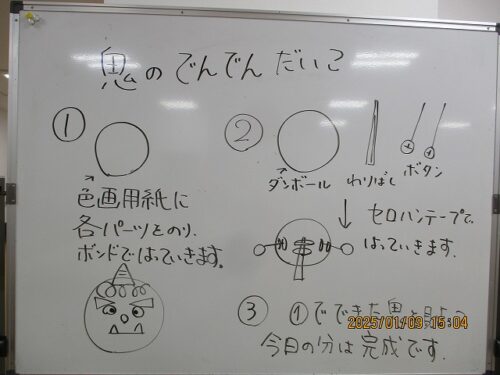 鬼のでんでんだいこ
①
色画用紙に
各パーツをのり、
ボンドではっていきます。
②
ダンボール わりばし ボタン
セロハンテープで、
はっていきます。
③ ①でできた鬼を
今日の分は完成です。
2025/01/09 15:04